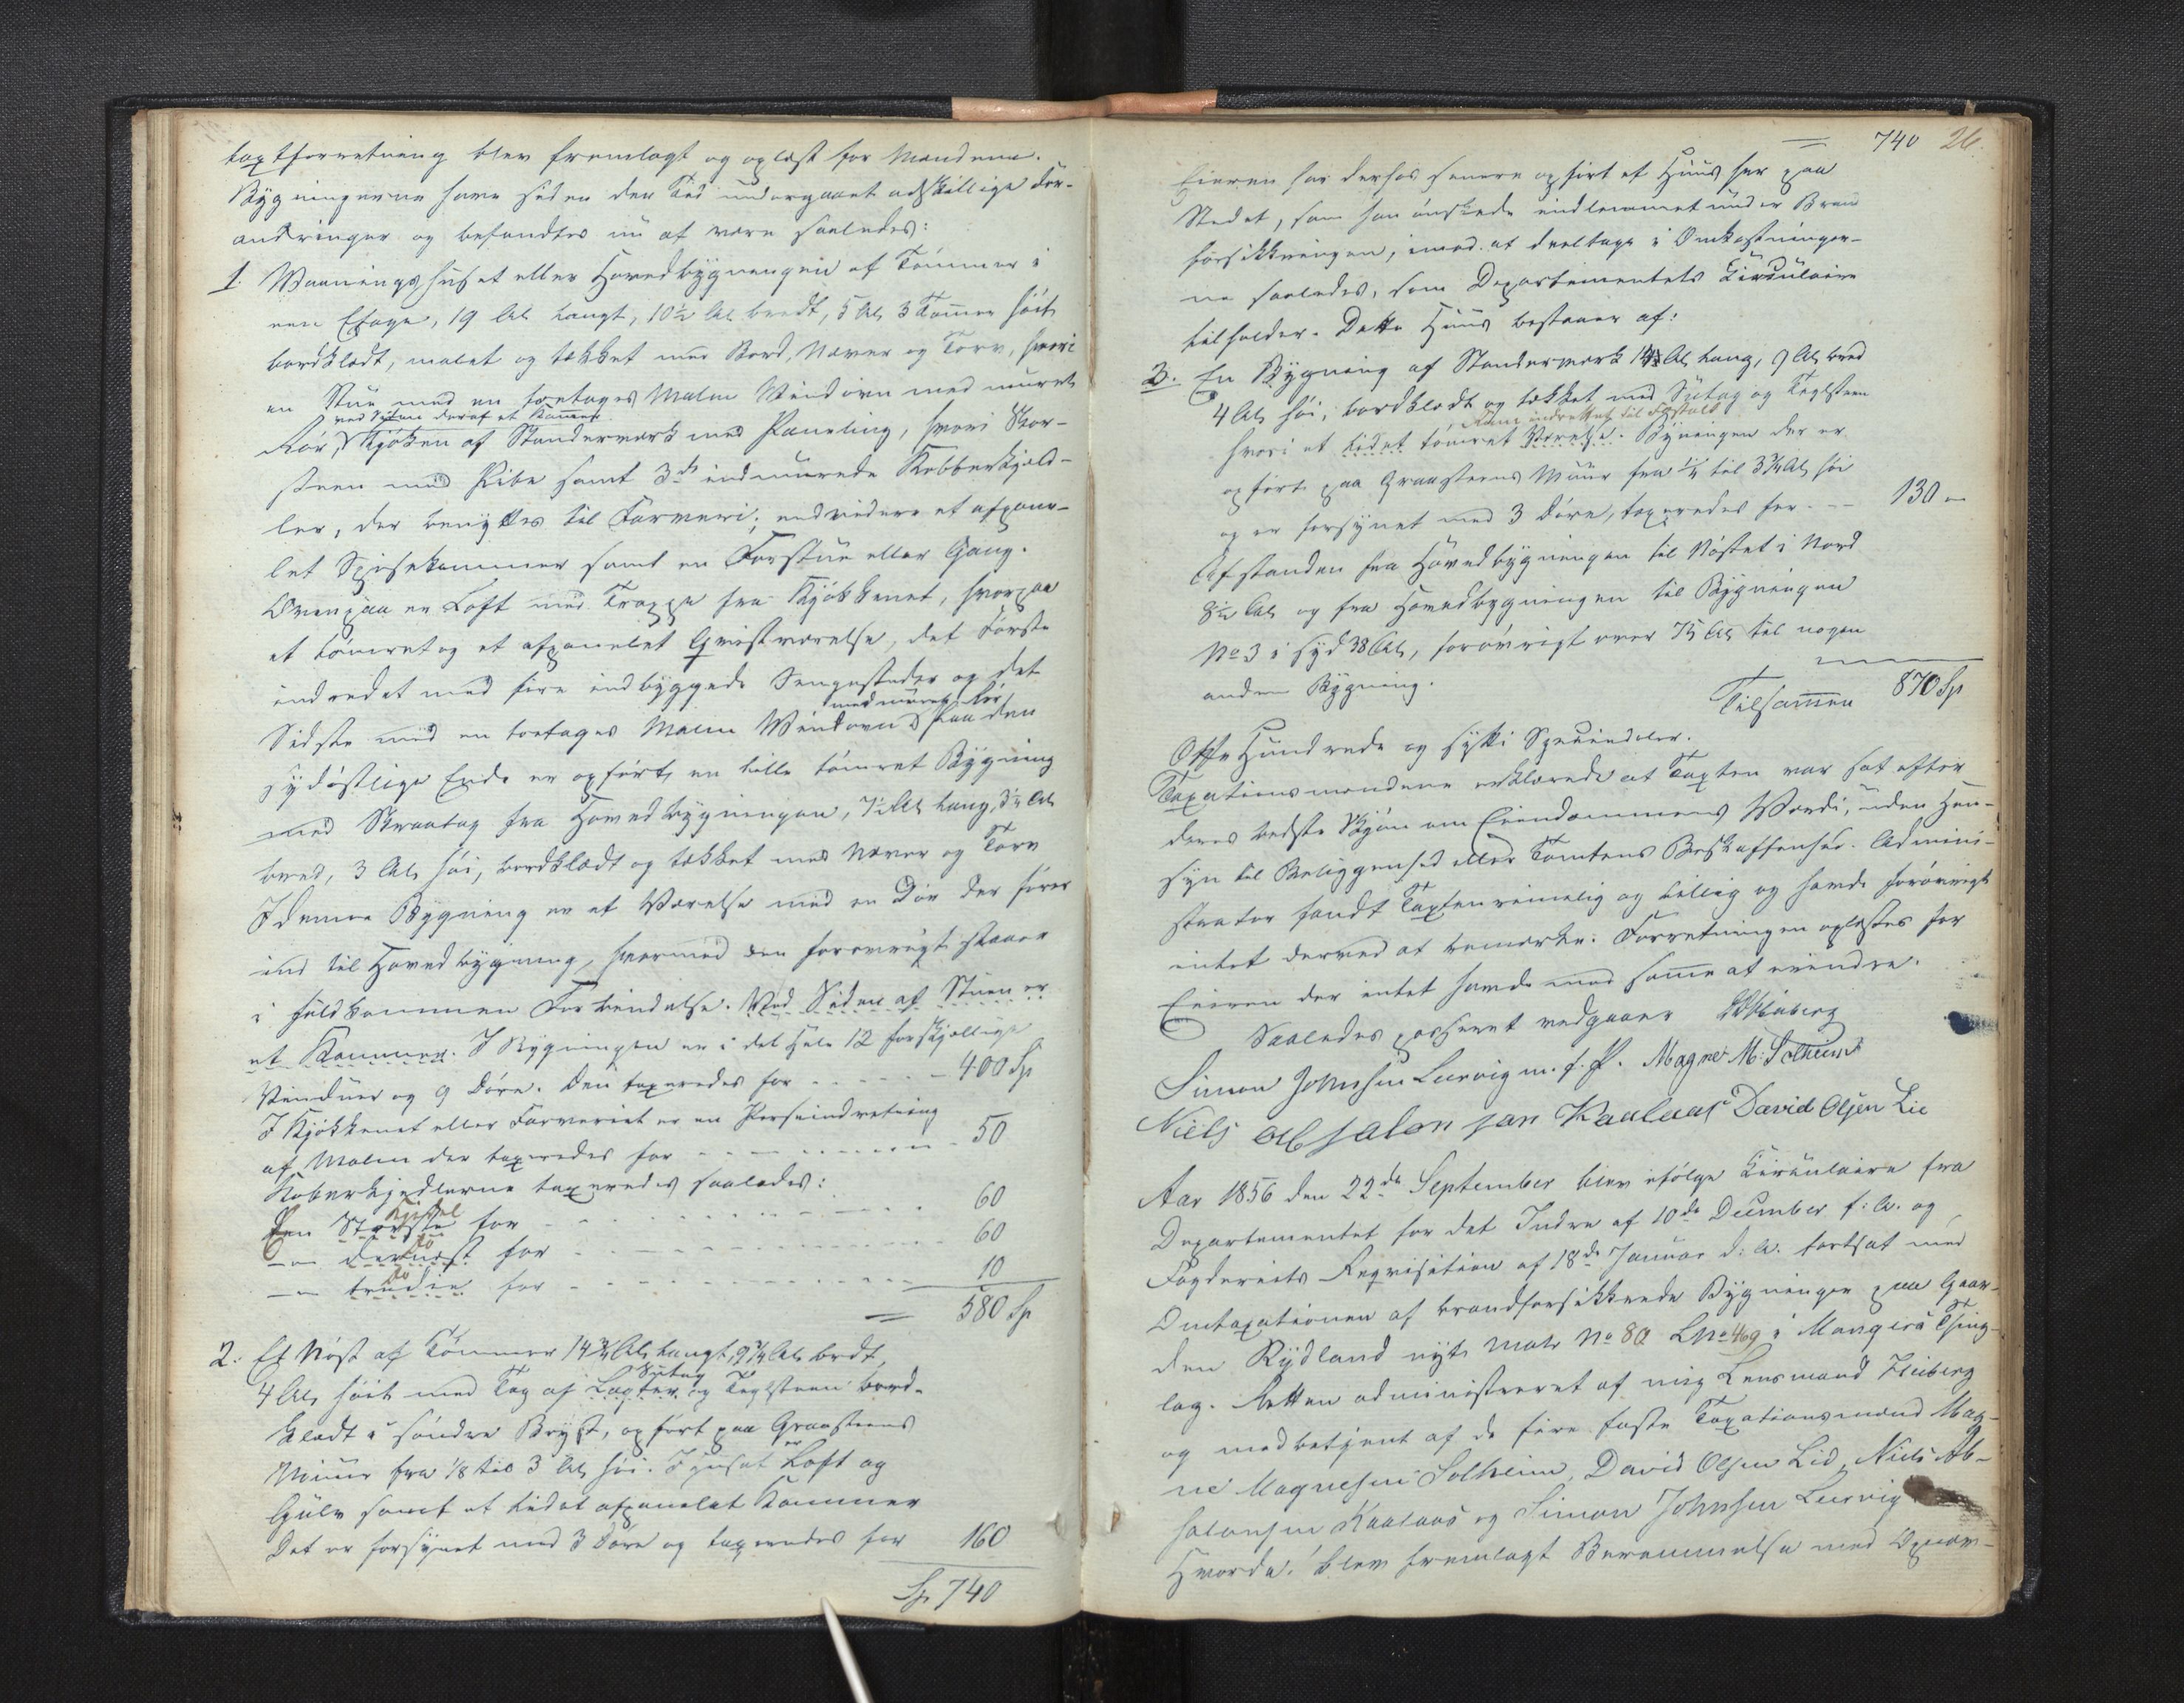 taxtforretning blev fremlagt og oplæst for Mændene.
Bygningerne have siden den Tid undergaaet adskillige For-
andringer og befandtes nu at være saaledes:
1. Vaaningshuset eller Hovedbygningen af Tømmer i
een Etage, 19 Al. langt, 10½ Al. bredt, 5 Al. 3 Tommer høit
bordklædt, malet og tækket med Bord, Næver og Torv, hvori
en Stue med en toetages Malm Vindovn med muret
ved Siden deraf et Kammer
Rør, Kjøken af Standerværk med Paneling, hvori Skor-
steen med Pibe samt 3de indmurede Kobberkjed-
ler, der benyttes til Farveri; endvidere et afpane-
let Spisekammer samt en Forstue eller Gang.
Ovenpaa er Loft med Trappe fra Kjøkkenet, hvorpaa
et tømret og et afpanelet Qvistværelse, det Første
indredet med fire indbyggede Sengesteder og det
med muret Rør
Sidste med en toetages Malm Vindovn. Paa den
sydøstlige Ende er opført en lille tømret Bygning
med Skraatag fra Hovedbygningen, 7½ Al. lang, 3½ Al.
bred, 3 Al. høi, bordklædt og tækket med Næver og Torv
I denne Bygning er et Værelse med en Dør der fører
ind til Hovedbygning, hvormed den forøvrigt staaer
i fuldkommen Forbindelse. Ved Siden af Stuen er
et Kammer. I Bygningen er i det Hele 12 forskjellige
Vinduer og 9 Døre. Den taxeredes for - - - - - 400 Sp
I Kjøkkenet eller Farveriet er en Perseindretning
af Malm der taxeredes for - - - - - - - 50
Koberkjedlerne taxeredes saaledes:
Kjedel
Den Største for - - - - - - - - - 60
do
— dernæst for - - - - - - - - - 60
do
— tredie for - - - - - - - - - 10
= 580 Sp
2. Et Nøst af Tømmer 14¾ Al. langt, 9¾ Al. bredt,
Sutag
4 Al. høit med Tag af Lægter og Teglsteen bord-
klædt i søndre Bryst, opført paa Graasteens
er
Muur fra 1/8 til 3 Al. høi. I Huset Loft og
Gulv samt et lidet afpanelet Kammer
Det er forsynet med 3 Døre og taxeredes for 160
Sp 740
= 740 26.
Eieren har derhos senere opført et Huus her paa
Stedet, som han ønskede indlemmet under Brand
forsikkringen, imod at deeltage i Omkostninger-
ne saaledes, som Departementets Circulaire
tilholder. Dette Huus bestaaer af:
3. En Bygning af Standerværk 14 Al. lang, 9 Al. bred
4 Al. høi, bordklædt og tækket med Sutag og Teglsteen
Rum indrettet til Fæstald
hvori et lidet tømret Værelse. Bygningen der er
opført paa Graasteens Muur fra ¼ til 3¾ Al. høi
og er forsynet med 3 Døre, taxeredes for - - - 130 —
Afstanden fra Hovedbygningen til Nøstet i Nord
8½ Al. og fra Hovedbygningen til Bygningen
No 3 i Syd 38 Al., forøvrigt over 75 Al. til nogen
anden Bygning.
Tilsammen 870 Sp
Otte Hundrede og sytti Speciedaler.
Taxationsmændene erklærede at Taxten var sat efter
deres bedste Skjøn om Eiendommens Værdi, uden Hen-
syn til Beliggenhed eller Tomtens Beskaffenhed. Admini-
strator fandt Taxten rimelig og billig og havde forøvrigt
intet derved at bemærke. Forretningen oplæstes for
Eieren der intet havde mod samme at erindre.
Saaledes passeret vedgaaer Heiberg
Simon Johnsen Leervig m. f. P. Magne M: Solheim
Niels Absalonsøn Kaalaas David Olsen Lie
Aar 1856 den 22de September blev ifølge Circulaire fra
Departementet for det Indre af 10de December f: A. og
Fogderiets Reqvisition af 18de Januar d: A. fortsat med
Omtaxationen af brandforsikkrede Bygninger paa Gaar-
den Rydland nyt Matr No 80 LNo 469 i Mangers Thing-
lag. Retten administreret af mig Lensmand Heiberg
og medbetjent af de fire faste Taxationsmænd Mag-
ne Magnesen Solheim, David Olsen Lid, Niels Ab-
salonsen Kaalaas og Simon Johnsen Leervig
Hvorda! blev fremlagt Berammelse med Opnæv-